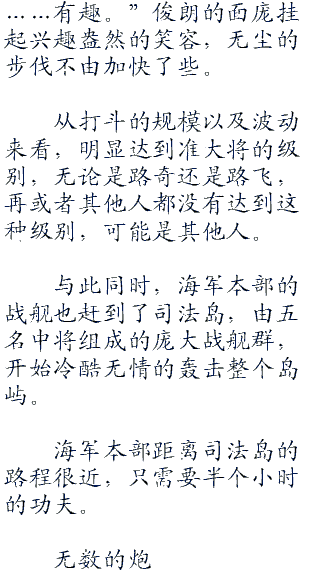 ……有趣。”俊朗的面庞挂
起兴趣盎然的笑容，无尘的
步伐不由加快了些。
从打斗的规模以及波动
来看，明显达到准大将的级
别，无论是路奇还是路飞，
再或者其他人都没有达到这
种级别，可能是其他人。
与此同时，海军本部的
战舰也赶到了司法岛，由五
名中将组成的庞大战舰群，
开始冷酷无情的轰击整个岛
屿。
海军本部距离司法岛的
路程很近，只需要半个小时
的功夫。
无数的炮